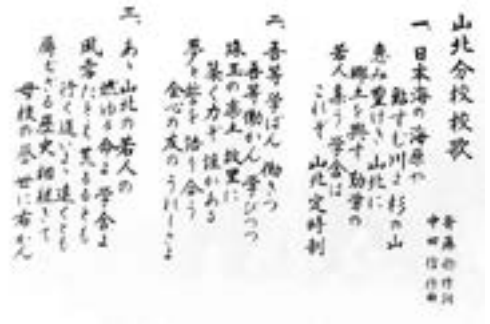 山北分校校歌
斉藤 作詞
中田 信 作曲
一、日本海の海原や
鮎すむ川よ杉の山
恵み豊けき山北に
郷土を興す勤労の
若人集う学舎は
これぞ山北定時制
二、吾等学ばん働きつ
吾等働かん学びつつ
珠玉の楽土故里に
築く力ぞ誰かある
夢と営を語り合う
会心の友のうれしさよ
三、あゝ山北の若人の
燃ゆる命よ学舎よ
風雪たとえ荒るるとも
行く道いよゝ遠くとも
かざる歴史相継ぎて
母校の誉世に布かん